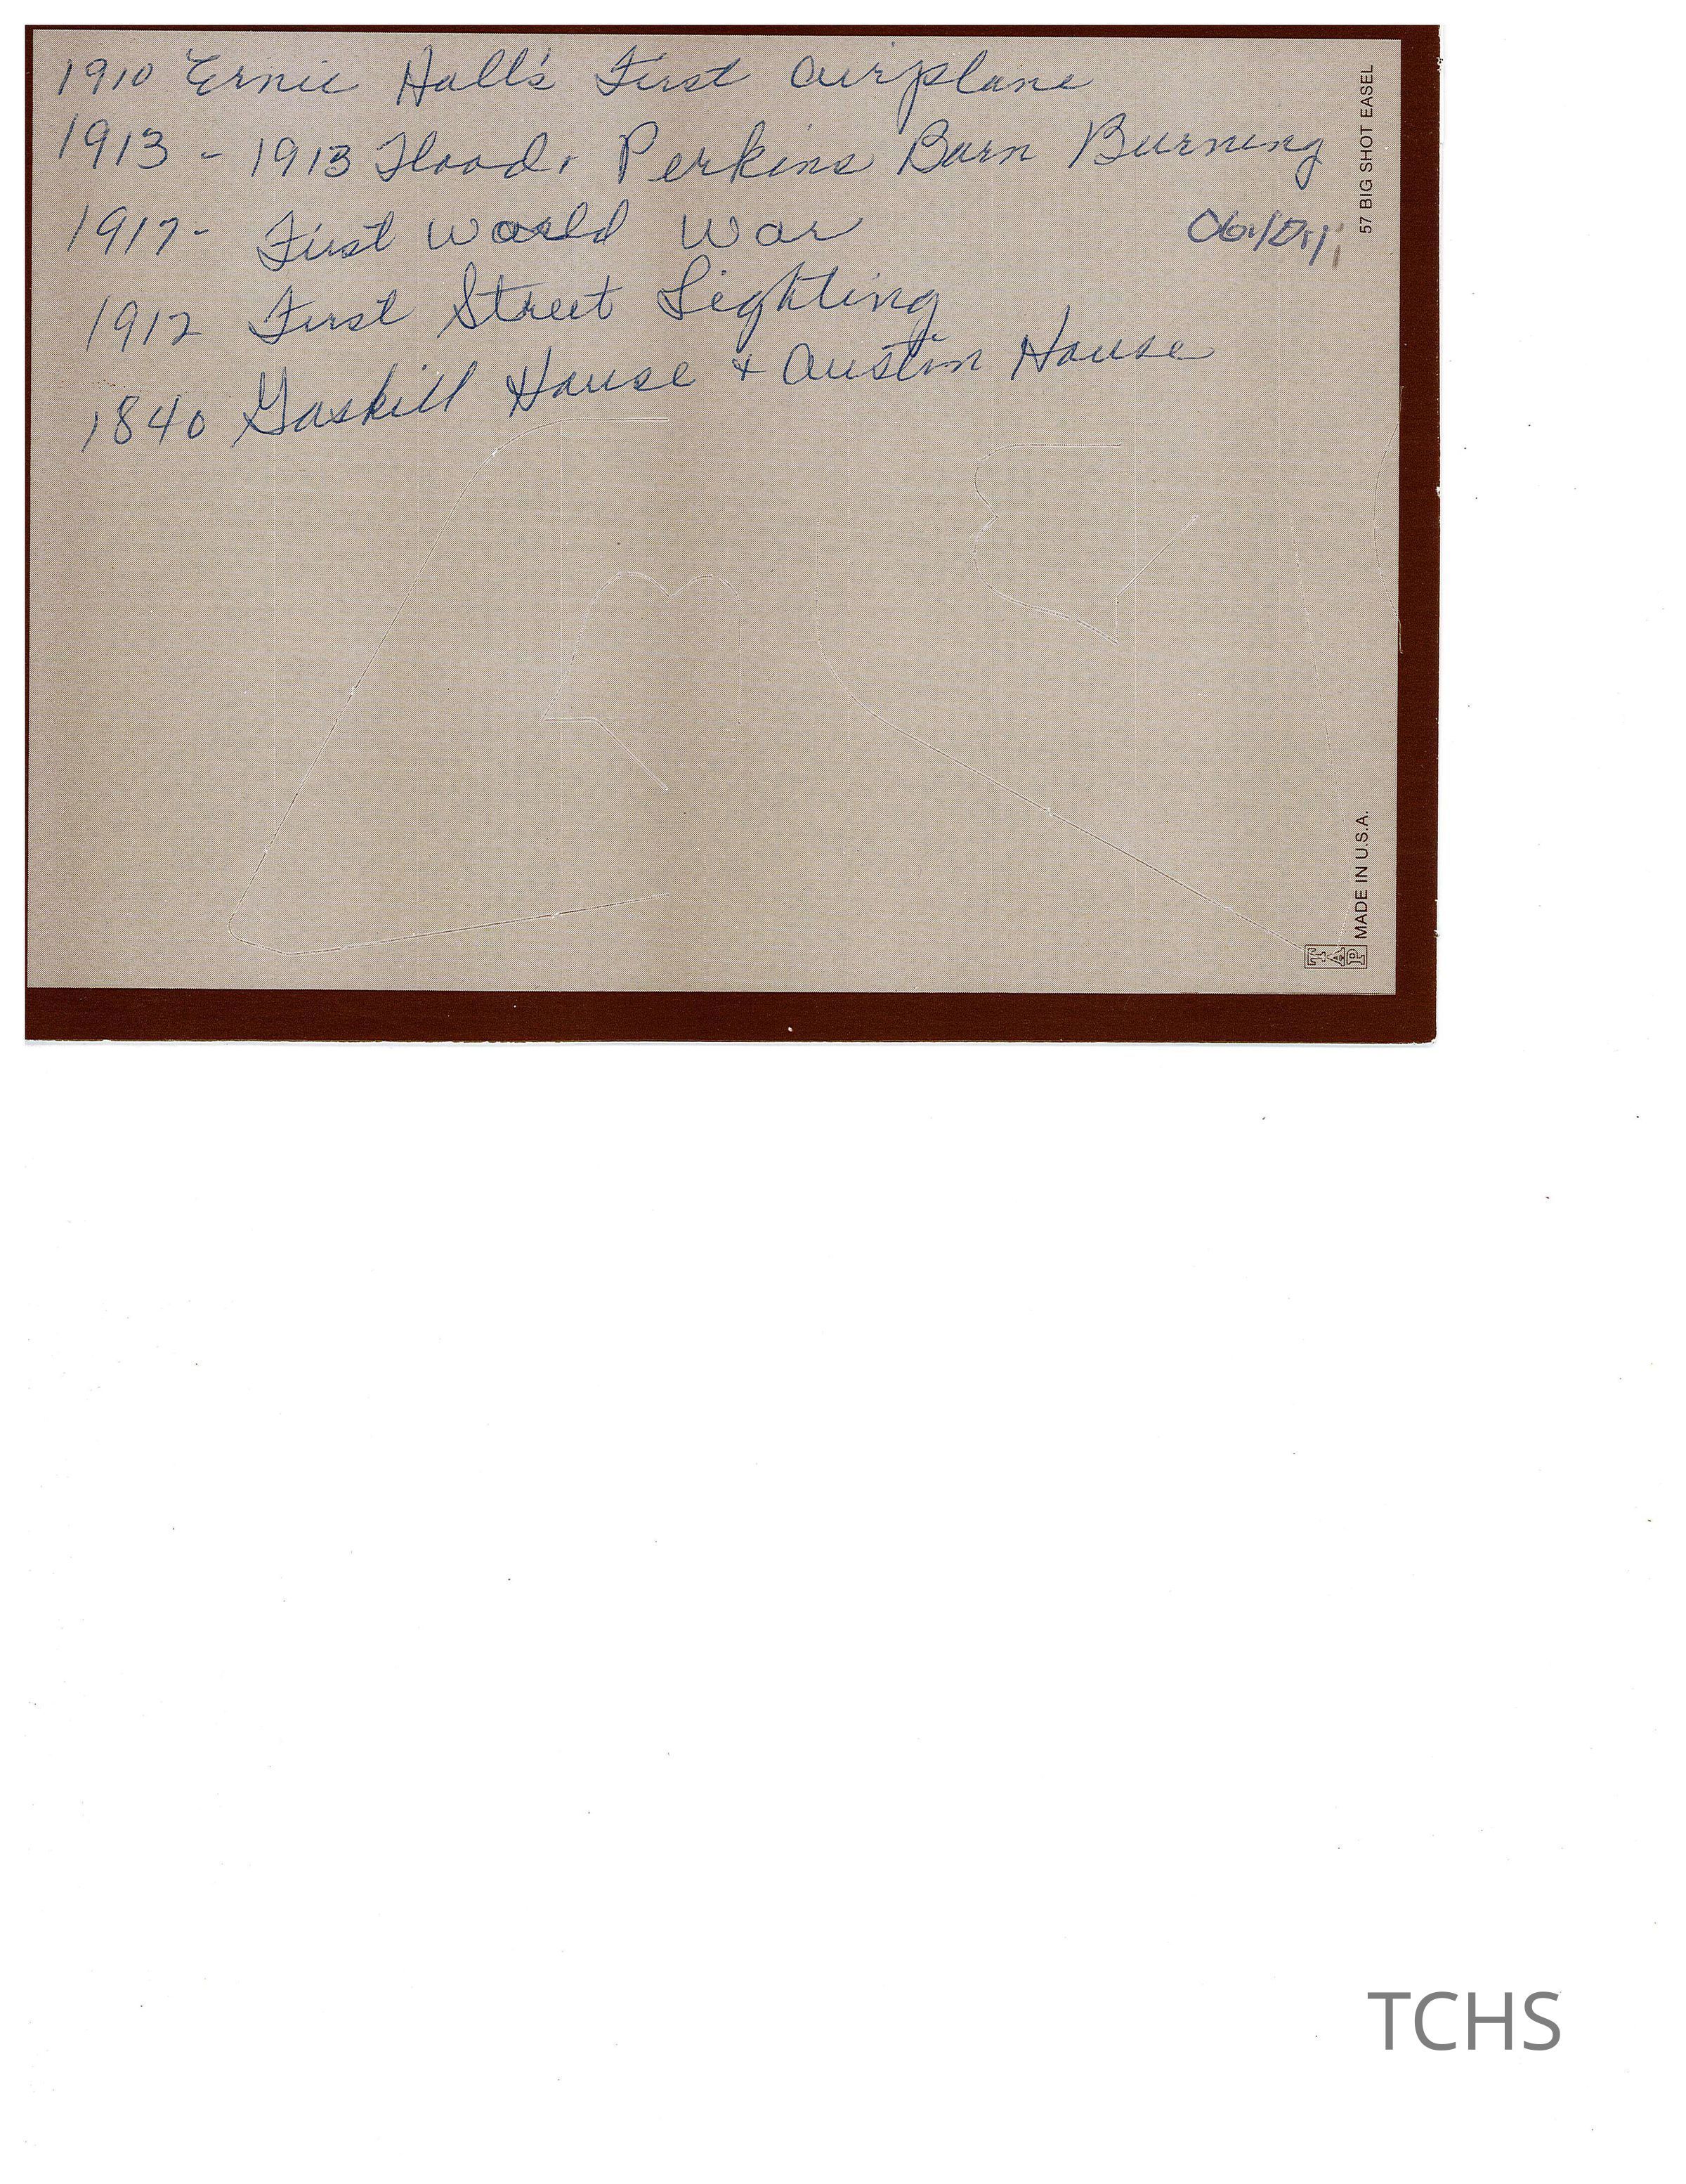 1910 Ernie Hall's First Airplane
1913 - 1913 Flood, Perkins Barn Burning
1917- First World War
1912 First Street Lighting
1840 Gaskill House + Austin House
57 BIG SHOT EASEL
MADE IN U.S.A.
TAP
TCHS